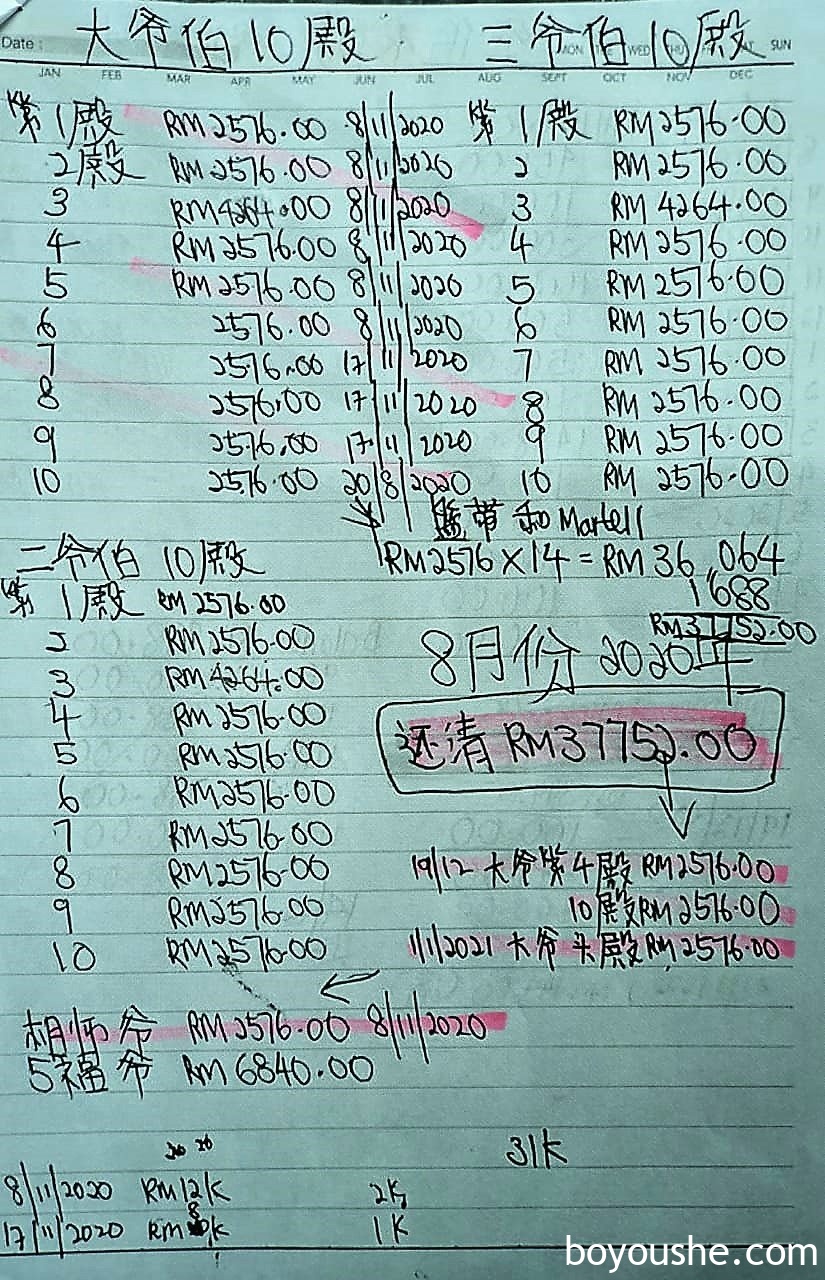 大爷伯10殿 三爷伯10殿
Date: MON TUE WED THU SAT SUN
JAN FEB MAR APR MAY JUN JUL AUG SEPT OCT NOV DEC
第1殿 RM2576.00 8/11/2020 第1殿 RM2576.00
2殿 RM2576.00 8/11/2020 2 RM2576.00
3 RM4264.00 8/11/2020 3 RM4264.00
4 RM2576.00 8/11/2020 4 RM2576.00
5 RM2576.00 8/11/2020 5 RM2576.00
6 2576.00 8/11/2020 6 RM2576.00
7 2576.00 17/11/2020 7 RM2576.00
8 2576.00 17/11/2020 8 RM2576.00
9 2576.00 17/11/2020 9 RM2576.00
10 2576.00 20/8/2020 10 RM2576.00
和Martell
二爷伯10殿 RM2576×14=RM36,064
第1殿 RM2576.00 1688
2 RM2576.00 RM37752.00
8月份2020年
3 RM4264.00
4 RM2576.00
还清RM37752.00
5 RM2576.00
6 RM2576.00
7 RM2576.00
8 RM2576.00 19/12 大爷第4殿RM2576.00
9 RM2576.00 10殿RM2576.00
10 RM2576.00 1/1/2021 大爷头殿RM2576.00
师爷 RM2576.00 8/11/2020
5福爷 RM6840.00
31K
8/11/2020 RM12K 2K
17/11/2020 RM 1K
boyoushe.com